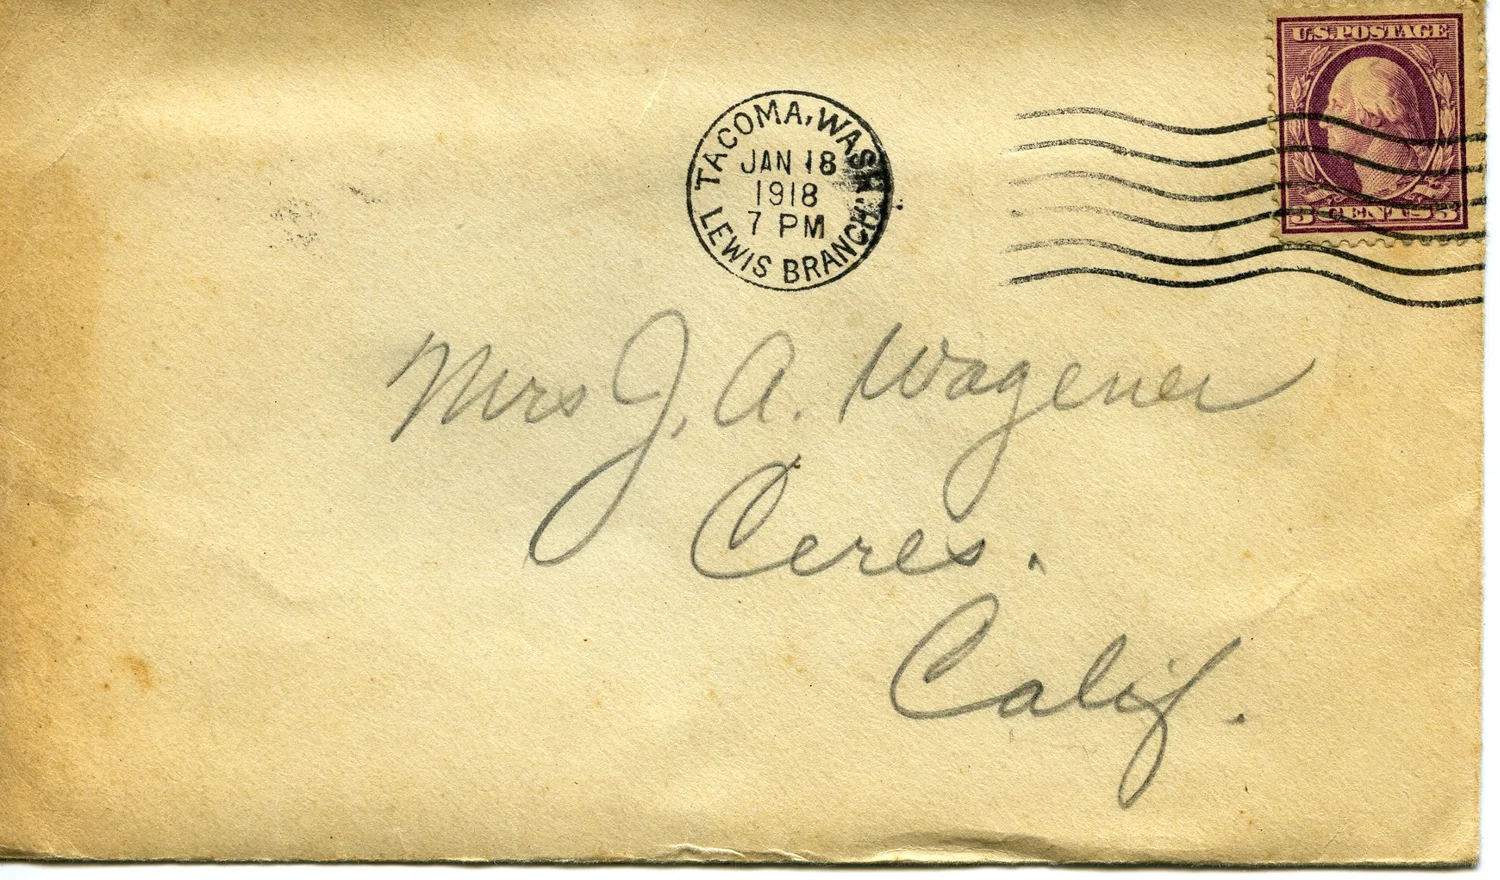 U.S.POSTAGE
3 CENTS 3
TACOMA, WASH.
JAN 18
1918
7 PM
LEWIS BRANCH
Mrs J. A. Wagener
Ceres.
Calif.